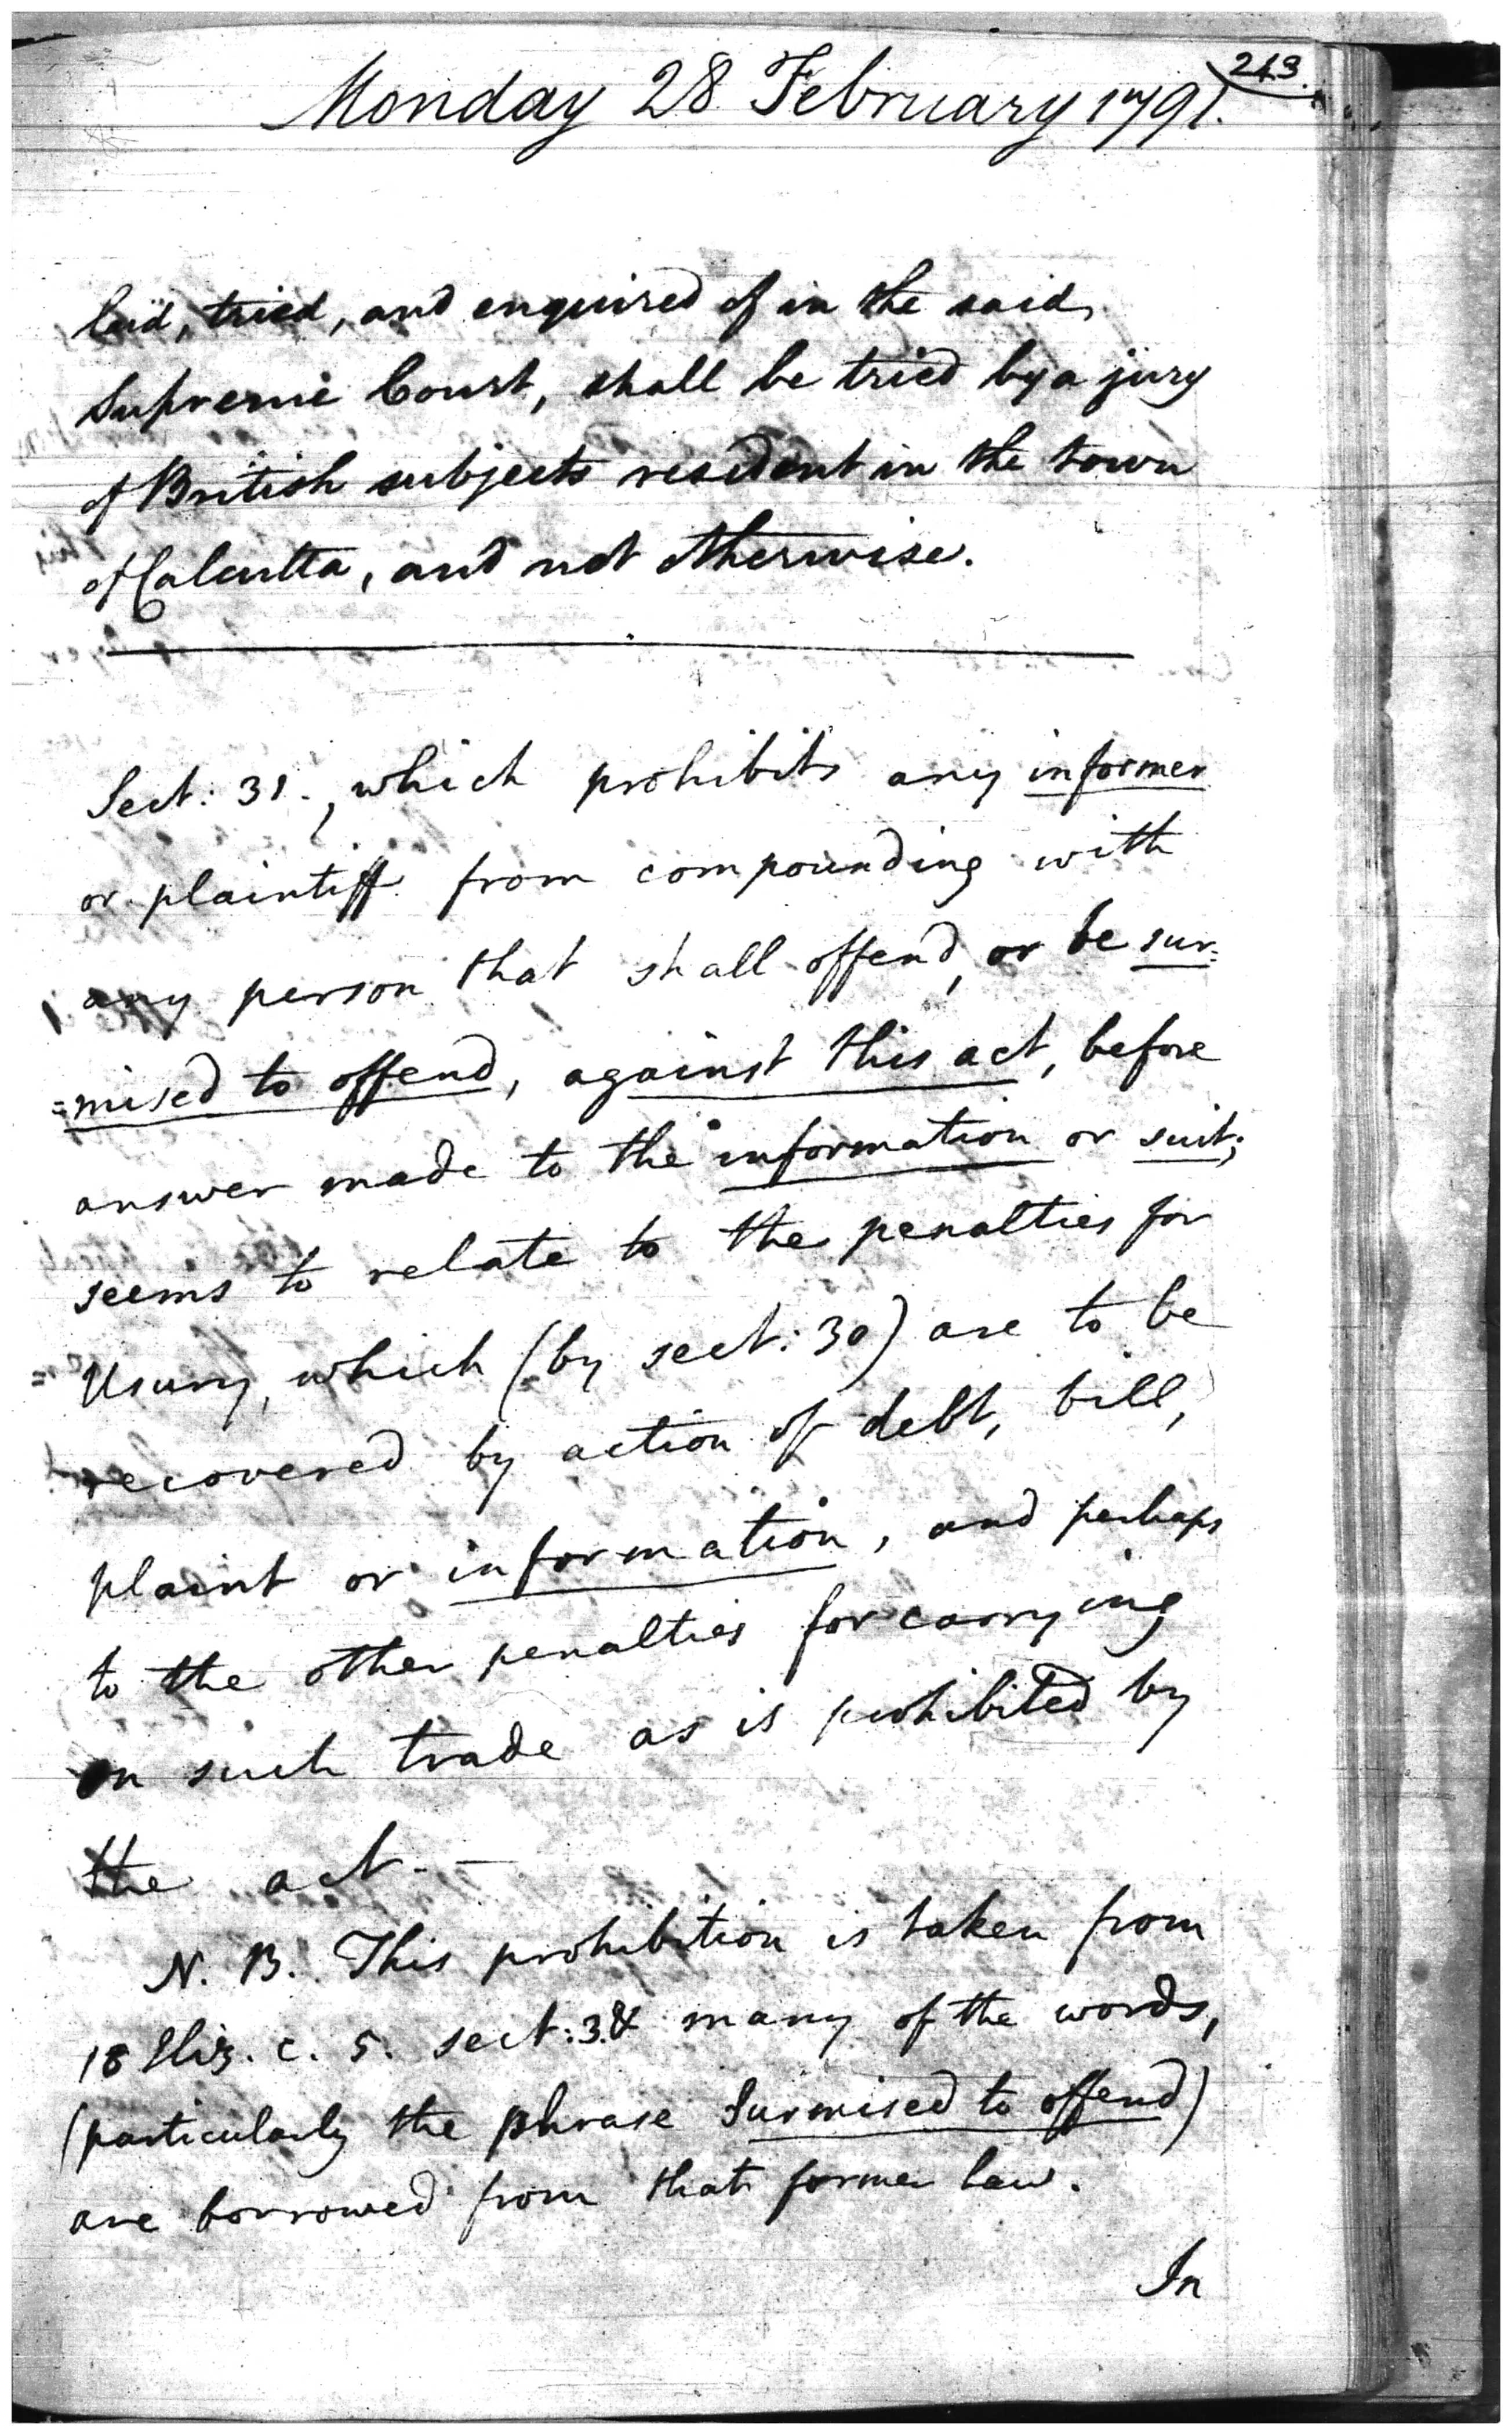 243.
Monday 28 February 1791.
laid, tried, and enquired of in the said
Supreme Court, shall be tried by a jury
of British subjects resident in the town
of Calcutta, and not otherwise.
Sect: 31., which prohibits any informer
or plaintiff from compounding with
any person that shall offend, or be sur=
=mised to offend, against this act, before
answer made to the information or suit;
seems to relate to the penalties for
Usury, which (by sect: 30) are to be
recovered by action of debt, bill,
plaint or information, and perhaps
to the other penalties for carrying
on such trade as is prohibited by
the act. —
N. B. This prohibition is taken from
18 Eliz. c. 5. sect: 3. & many of the words,
(particularly the phrase Surmised to offend)
are borrowed from that former law.
In